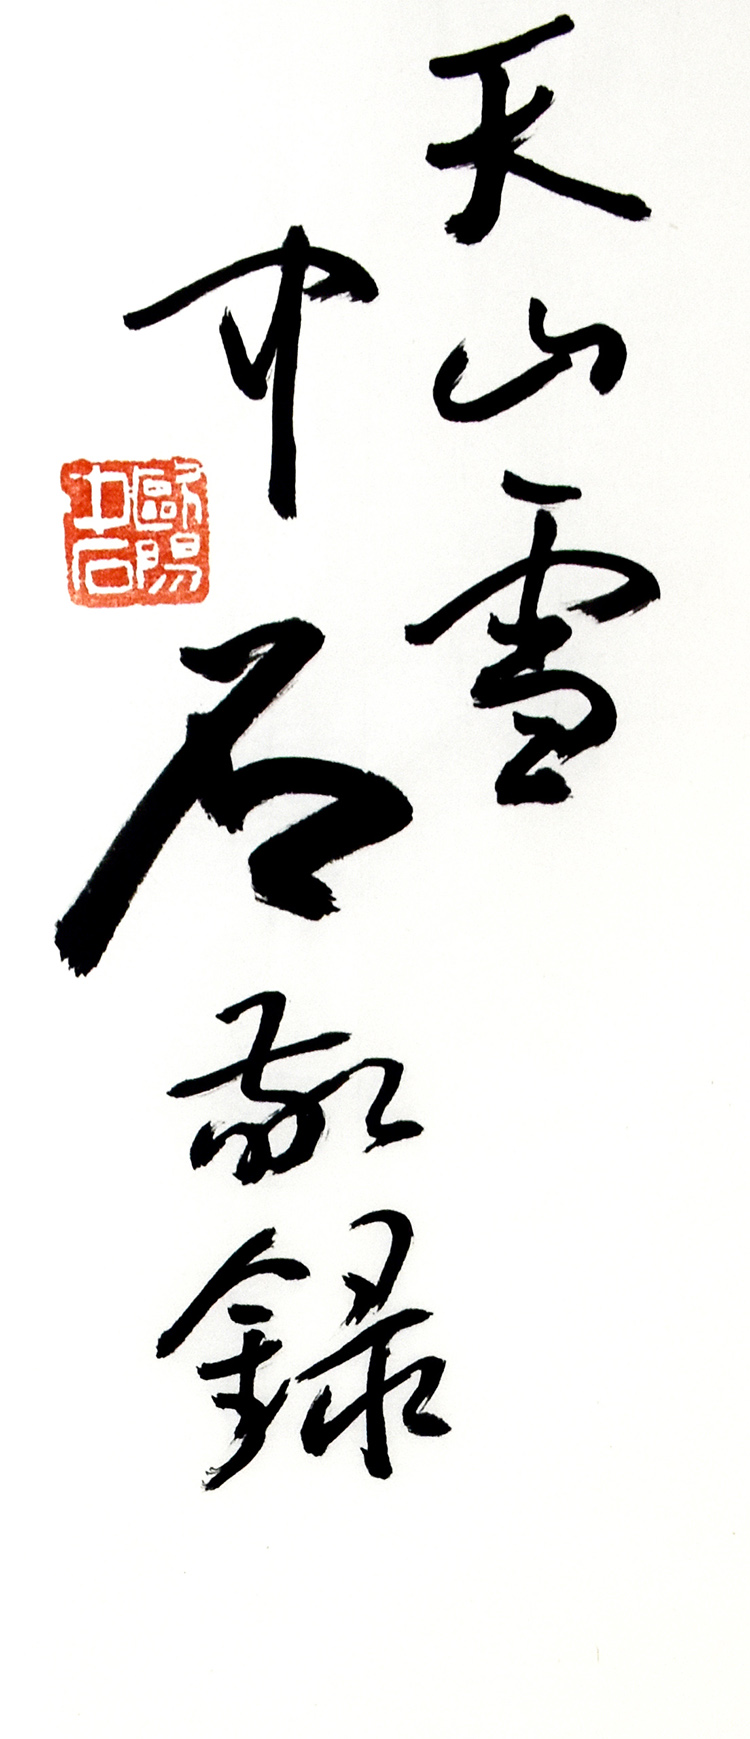 天山雪
中石敬録
歐陽
中石